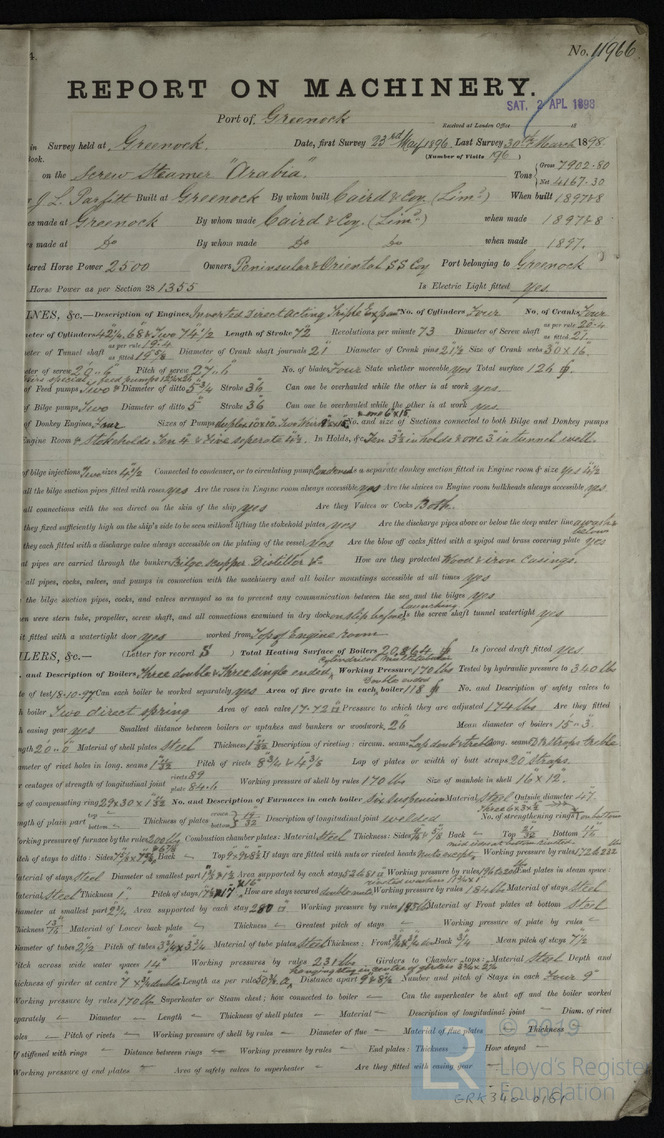 No. 11966
REPORT ON MACHINERY.
Port of Greenock
SAT. 2 APL 1898
Received at London Office 18
in Survey held at Greenock. Date, first Survey 23rd May 1896 Last Survey 30th March 1898.
(Number of Visits 196)
on the Screw Steamer "Arabia". Tons Gross 7902.80 Net 4167.30
J L Parfitt Built at Greenock By whom built Caird & Coy. (Limd) When built 1897&8
es made at Greenock By whom made Caird & Coy. (Limd) when made 1897&8
s made at Do By whom made Do Do when made 1897.
tered Horse Power 2500 Owners Peninsular & Oriental S S Coy Port belonging to Greenock
Horse Power as per Section 28 1355 Is Electric Light fitted yes.
INES, &c.—Description of Engines Inverted Direct Acting, Triple Expan No. of Cylinders Four No. of Cranks Four
eter of Cylinders 42½, 68 & Two 74½ Length of Stroke 72 Revolutions per minute 73 Diameter of Screw shaft as per rule 20.4 as fitted 21
eter of Tunnel shaft as per rule 19.4 as fitted 19⅝ Diameter of Crank shaft journals 21 Diameter of Crank pins 21½ Size of Crank webs 30 x 16
ter of screw 20.6 Pitch of screw 27.6 No. of blades Four State whether moveable yes Total surface 126
of Feed pumps Two Diameter of ditto 5¾ Stroke 36 Can one be overhauled while the other is at work yes.
of Bilge pumps Two Diameter of ditto 5 Stroke 36 Can one be overhauled while the other is at work yes
of Donkey Engines Four Sizes of Pumps No. and size of Suctions connected to both Bilge and Donkey pumps
Engine Room & Stokeholds Ten 4 & Five seperate 4½. In Holds, &c. Ten 3½ in holds & one 3 in tunnel well.
of bilge injections Two sizes 4½ Connected to condenser, or to circulating pump Is a separate donkey suction fitted in Engine room & size yes 4½
all the bilge suction pipes fitted with roses yes Are the roses in Engine room always accessible yes Are the sluices on Engine room bulkheads always accessible yes
all connections with the sea direct on the skin of the ship yes Are they Valves or Cocks Both.
they fixed sufficiently high on the ship's side to be seen without lifting the stokehold plates yes Are the discharge pipes above or below the deep water line above & below
they each fitted with a discharge valve always accessible on the plating of the vessel yes Are the blow off cocks fitted with a spigot and brass covering plate yes
at pipes are carried through the bunkers Bilge, scupper, Distiller &c How are they protected Wood & iron casings.
all pipes, cocks, valves, and pumps in connection with the machinery and all boiler mountings accessible at all times yes
the bilge suction pipes, cocks, and valves arranged so as to prevent any communication between the sea and the bilges yes
en were stern tube, propeller, screw shaft, and all connections examined in dry dock on slip before launching Is the screw shaft tunnel watertight yes
it fitted with a watertight door yes worked from Top of Engine room
ILERS, &c.— (Letter for record S) Total Heating Surface of Boilers 20,864 Is forced draft fitted yes
. and Description of Boilers Three double & Three single ended, Working Pressure 170 lbs Tested by hydraulic pressure to 340 lbs
te of test 18-10-97 Can each boiler be worked separately yes Area of fire grate in each boiler 118 No. and Description of safety valves to
h boiler Two direct spring Area of each valve 17.72 Pressure to which they are adjusted 174 lbs Are they fitted
h easing gear yes Smallest distance between boilers or uptakes and bunkers or woodwork 26 Mean diameter of boilers 15.3
ngth 20.0 Material of shell plates Steel Thickness Description of riveting: circum. seams Lap doub & treble long. seams D.B. straps treble
ameter of rivet holes in long. seams Pitch of rivets 8¾ & 4⅜ Lap of plates or width of butt straps 20 straps.
er centages of strength of longitudinal joint rivets 89 plate 84.6 Working pressure of shell by rules 170 lbs Size of manhole in shell 16 x 12
ze of compensating ring No. and Description of Furnaces in each boiler Six Suspension Material Steel Outside diameter 47
ength of plain part top bottom Thickness of plates crown bottom Description of longitudinal joint welded No. of strengthening rings
Working pressure of furnace by the rules 200 lbs Combustion chamber plates: Material Steel Thickness: Sides Back Top Bottom
Pitch of stays to ditto: Sides Back Top If stays are fitted with nuts or riveted heads Working pressure by rules
Material of stays Steel Diameter at smallest part Area supported by each stay Working pressure by rules End plates in steam space:
Material Steel Thickness 1" Pitch of stays How are stays secured Working pressure by rules 184 lbs Material of stays Steel
Diameter at smallest part Area supported by each stay 280 Working pressure by rules 185 lbs Material of Front plates at bottom Steel
Thickness Material of Lower back plate Thickness Greatest pitch of stays Working pressure of plate by rules
Diameter of tubes 2½ Pitch of tubes 3¾ x 3¾ Material of tube plates Steel Thickness: Front Back ¾ Mean pitch of stays 7½
Pitch across wide water spaces 14" Working pressures by rules 231 lbs Girders to Chamber tops: Material Steel Depth and
thickness of girder at centre Length as per rule Distance apart Number and pitch of Stays in each Four 9"
Working pressure by rules 170 lbs Superheater or Steam chest; how connected to boiler Can the superheater be shut off and the boiler worked
separately Diameter Length Thickness of shell plates Material Description of longitudinal joint Diam. of rivet
holes Pitch of rivets Working pressure of shell by rules Diameter of flue Material of flue plates Thickness
If stiffened with rings Distance between rings Working pressure by rules End plates: Thickness How stayed
Working pressure of end plates Area of safety valves to superheater Are they fitted with easing gear
© 2019
LR
Lloyd's Register
Foundation
GRK340-0161